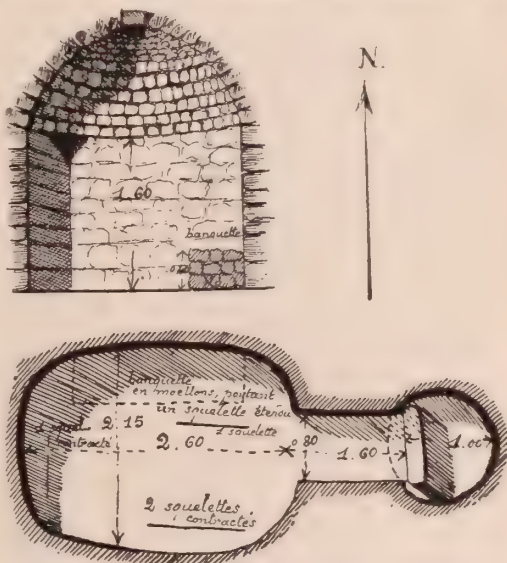 N.
1.60
banquette
banquette
en moellons, portant
un squelette étendu
1 squelette
contracté
2.15
1 squelette
2.60
0 80
1.60
1.00
2 squelettes
contractés